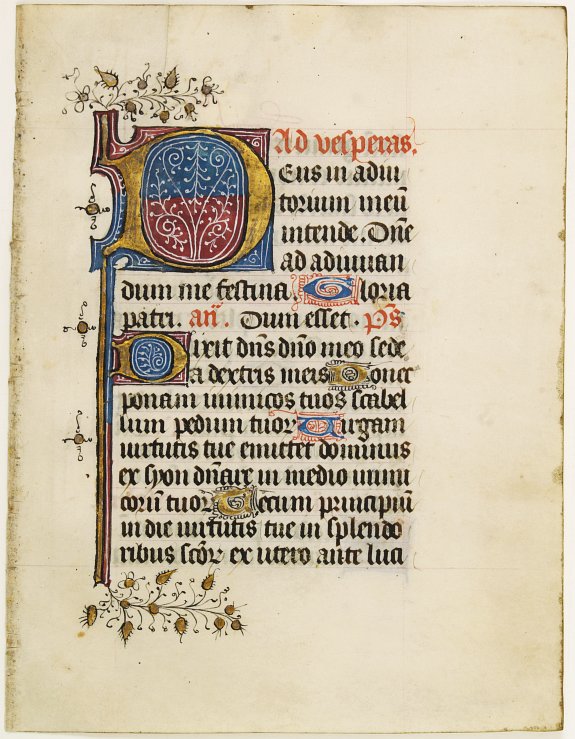 Ad vesperas.
Deus in adiu
torium meū
intende. Dn̄e
ad adiuuan
dum me festina. Gloria
patri. an̄. Dum esset. Ps̄
Dixit dn̄s dn̄o meo sede
a dextris meis Donec
ponam inimicos tuos scabel
lum pedum tuoꝝ Uirgam
uirtutis tue emittet dominus
ex syon dn̄are in medio inimi
corū tuoꝝ Tecum principiū
in die uirtutis tue in splendo
ribus sc̄oꝝ ex utero ante luci